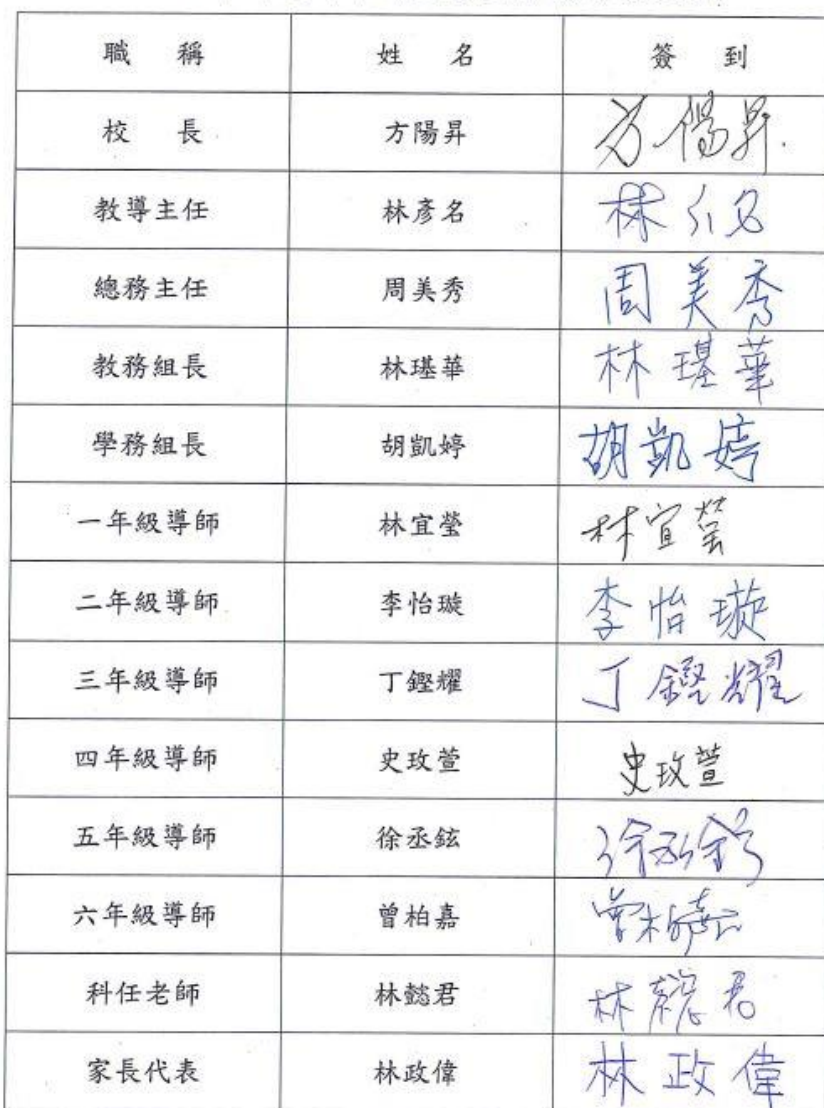 職 稱 姓 名 簽 到
校 長 方陽昇 方陽昇
教導主任 林彥名 林彥名
總務主任 周美秀 周美秀
教務組長 林璂華 林璂華
學務組長 胡凱婷 胡凱婷
一年級導師 林宜瑩 林宜瑩
二年級導師 李怡璇 李怡璇
三年級導師 丁鏗耀 丁鏗耀
四年級導師 史玫萱 史玫萱
五年級導師 徐丞鉉 徐丞鉉
六年級導師 曾柏嘉 曾柏嘉
科任老師 林懿君 林懿君
家長代表 林政偉 林政偉